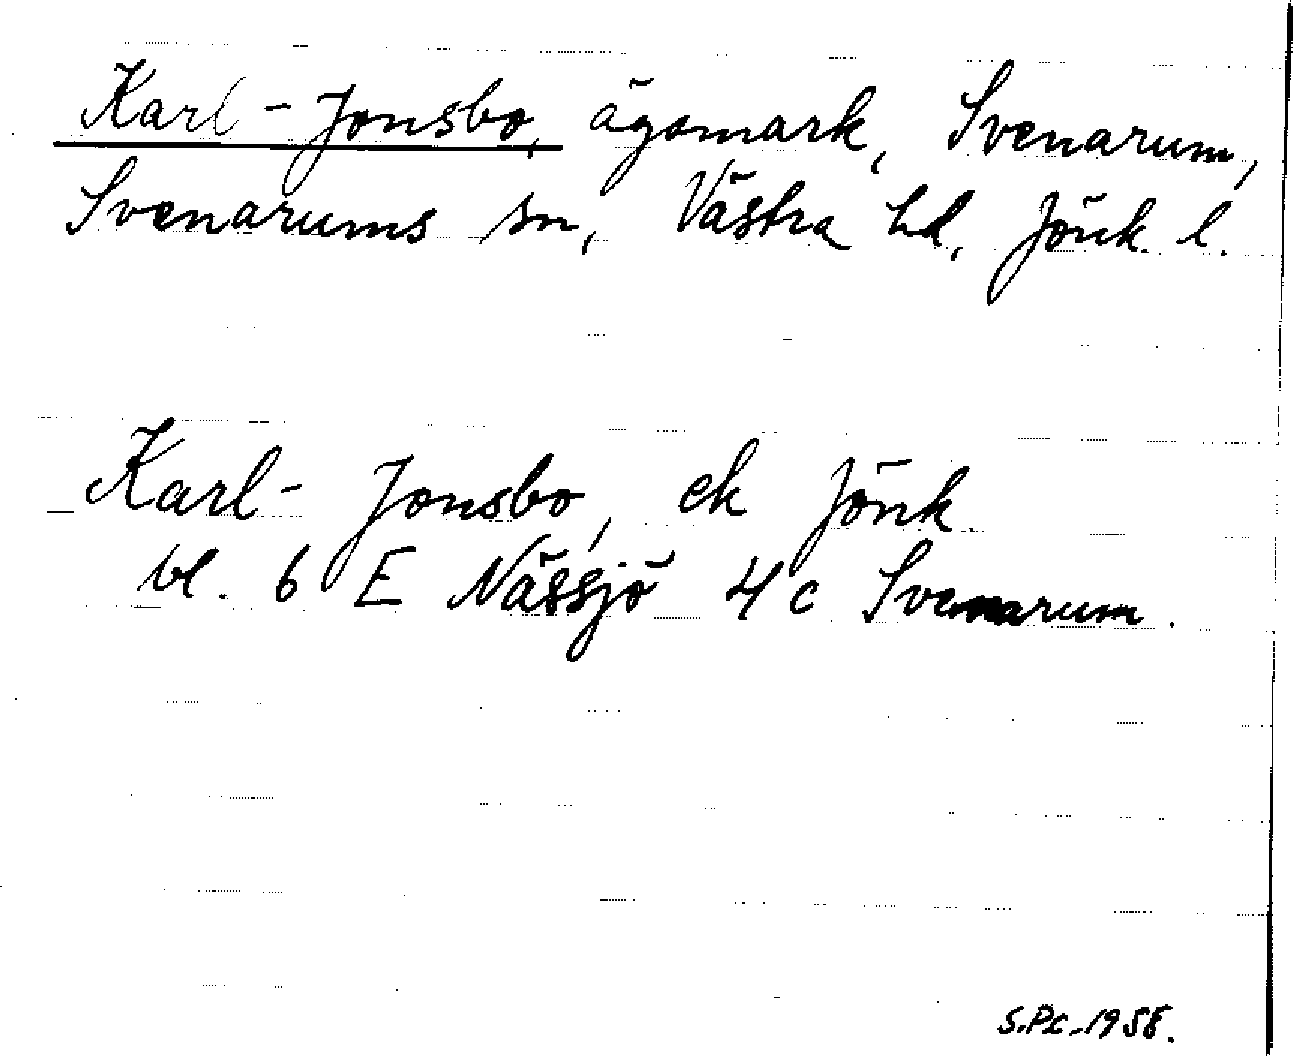 Karl-Jonsbo, ägomark, Svenarum,
Svenarums sn, Västra hd, Jönk. l.
Karl-Jonsbo, ek Jönk
bl. 6 E Nässjö 4c Svenarum.
S.Pc-1958.